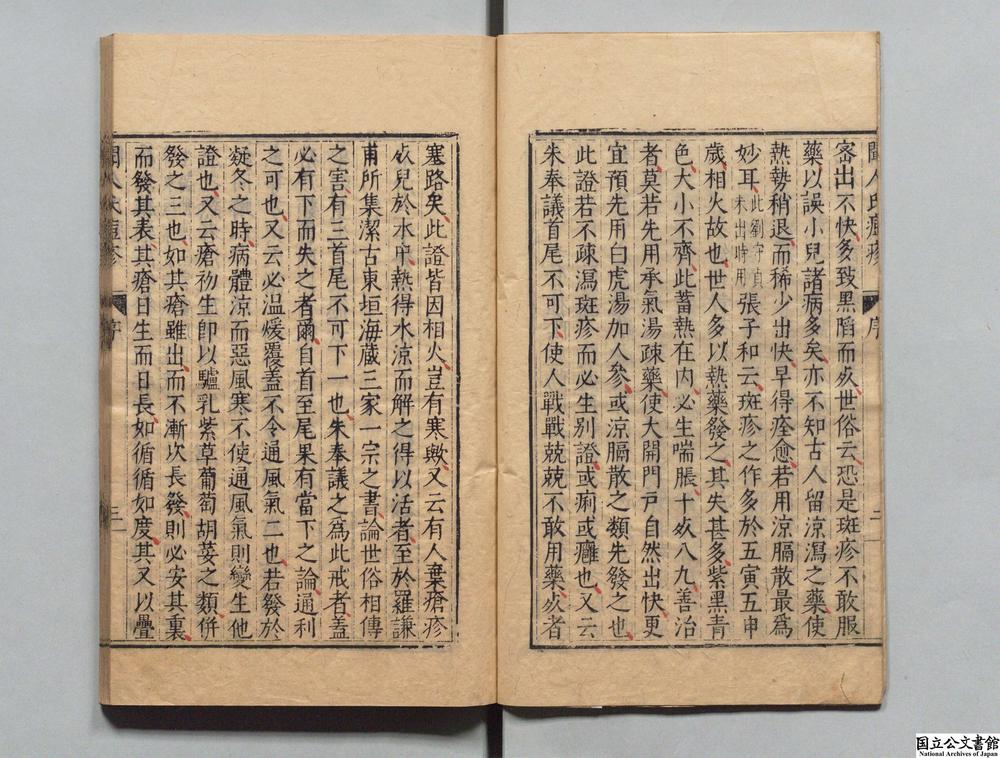 密出不快多致黑陷而死世俗云恐是斑疹不敢服
藥以誤小兒諸病多矣亦不知古人留涼瀉之藥使
熱勢稍退而稀少出快早得痊愈若用涼膈散最爲
妙耳此劉守真未出時用張子和云斑疹之作多於五寅五申
歲相火故也世人多以熱藥發之其失甚多紫黑青
色大小不齊此蓄熱在內必生喘脹十死八九善治
者莫若先用承氣湯疎藥使大開門戸自然出快更
宜預先用白虎湯加人參或涼膈散之類先發之也
此證若不疎瀉斑疹而必生别證或痢或癰也又云
朱奉議首尾不可下使人戰戰兢兢不敢用藥死者
塞路矣此證皆因相火豈有寒歟又云有人棄瘡疹
死兒於水中熱得水涼而解之得以活者至於羅謙
甫所集潔古東垣海藏三家一宗之書論世俗相傳
之害有三首尾不可下一也朱奉議之爲此戒者蓋
必有下而失之者爾自首至尾果有當下之論通利
之可也又云必温煖覆蓋不令通風氣二也若發於
凝冬之時病體涼而惡風寒不使通風氣則變生他
證也又云瘡初生卽以驢乳紫草葡萄胡荽之類併
發之三也如其瘡雖出而不漸次長發則必安其裏
而發其表其瘡日生而日長如循循如度其又以疊
序
二
序
三